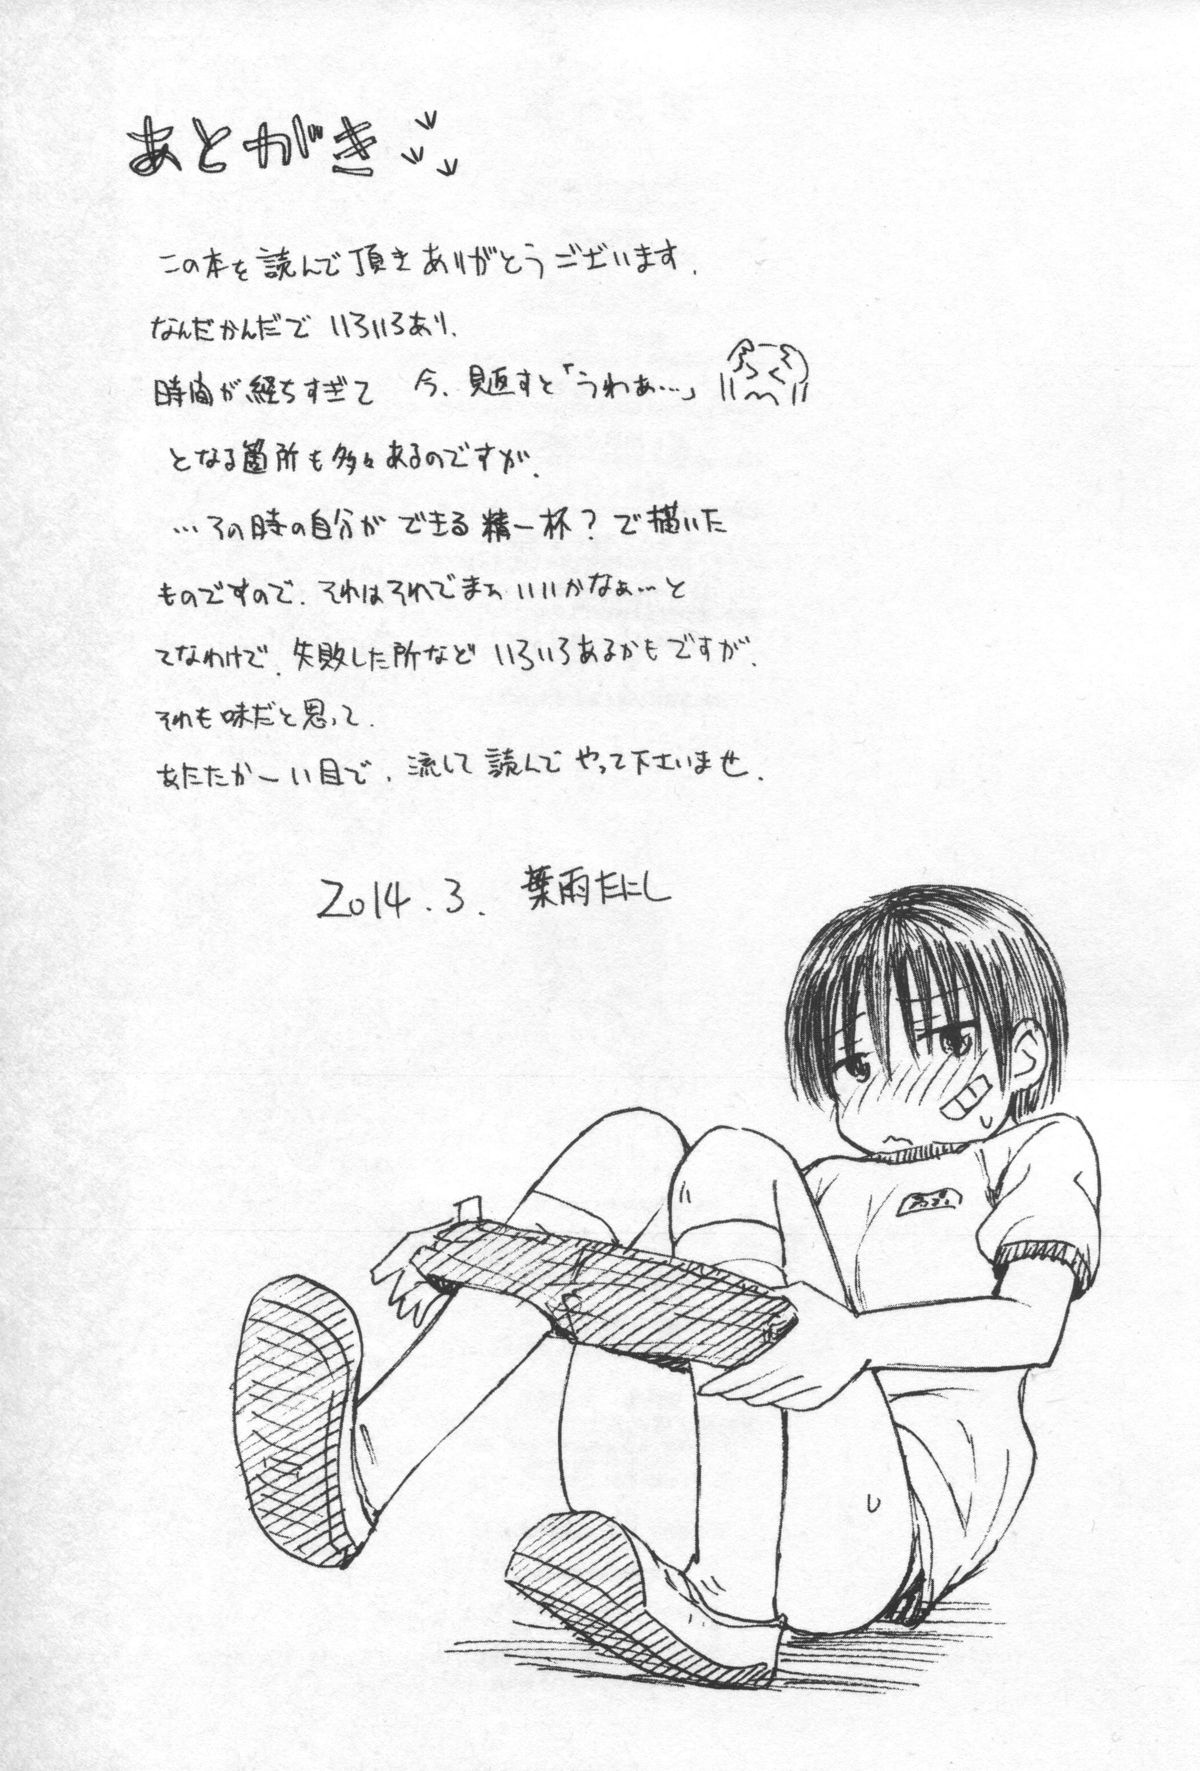 あとがき
この本を読んで頂きありがとうございます。
なんだかんだで いろいろあり、
時間が経ちすぎて 今、見返すと「うわぁ…」
となる箇所も多々あるのですが、
…その時の自分ができる精一杯?で描いた
ものですので、それはそれでまぁいいかなぁ…と
てなわけで、失敗した所など いろいろあるかもですが、
それも味だと思って、
あたたかーい目で、流して読んでやって下さいませ。
2014.3. 葉雨たにし